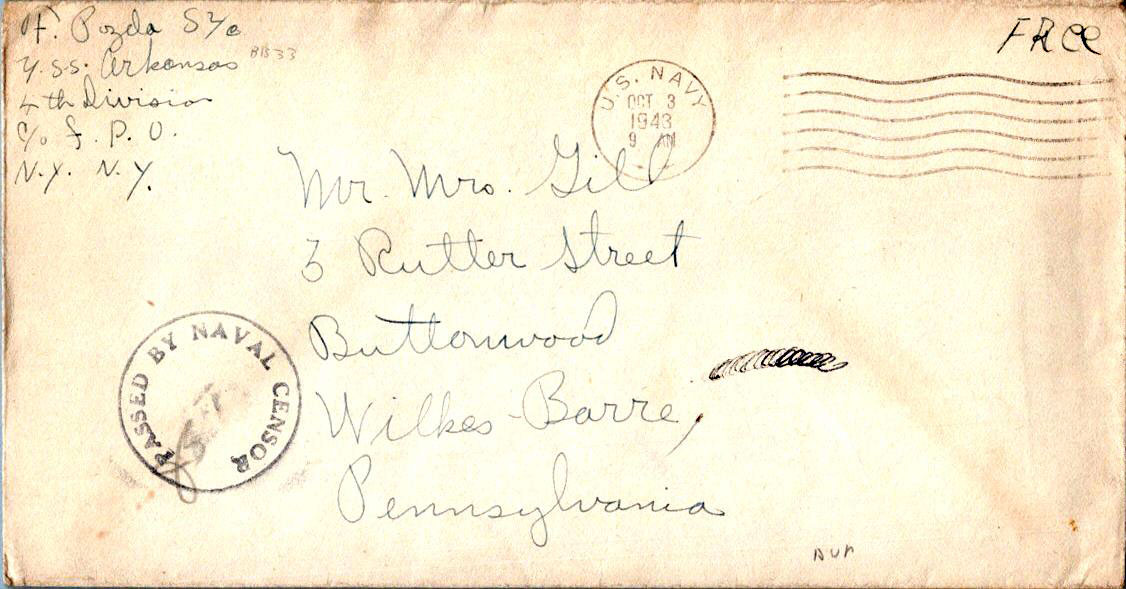 H. Pozda S2/c
U.S.S. Arkansas BB33
4th Division
c/o F. P. O.
N.Y. N.Y.
FREE
U.S. NAVY
OCT 3
1943
9 AM
Mr. Mrs. Gill
3 Rutter Street
Buttonwood
Wilkes-Barre,
Pennsylvania
PASSED BY NAVAL CENSOR